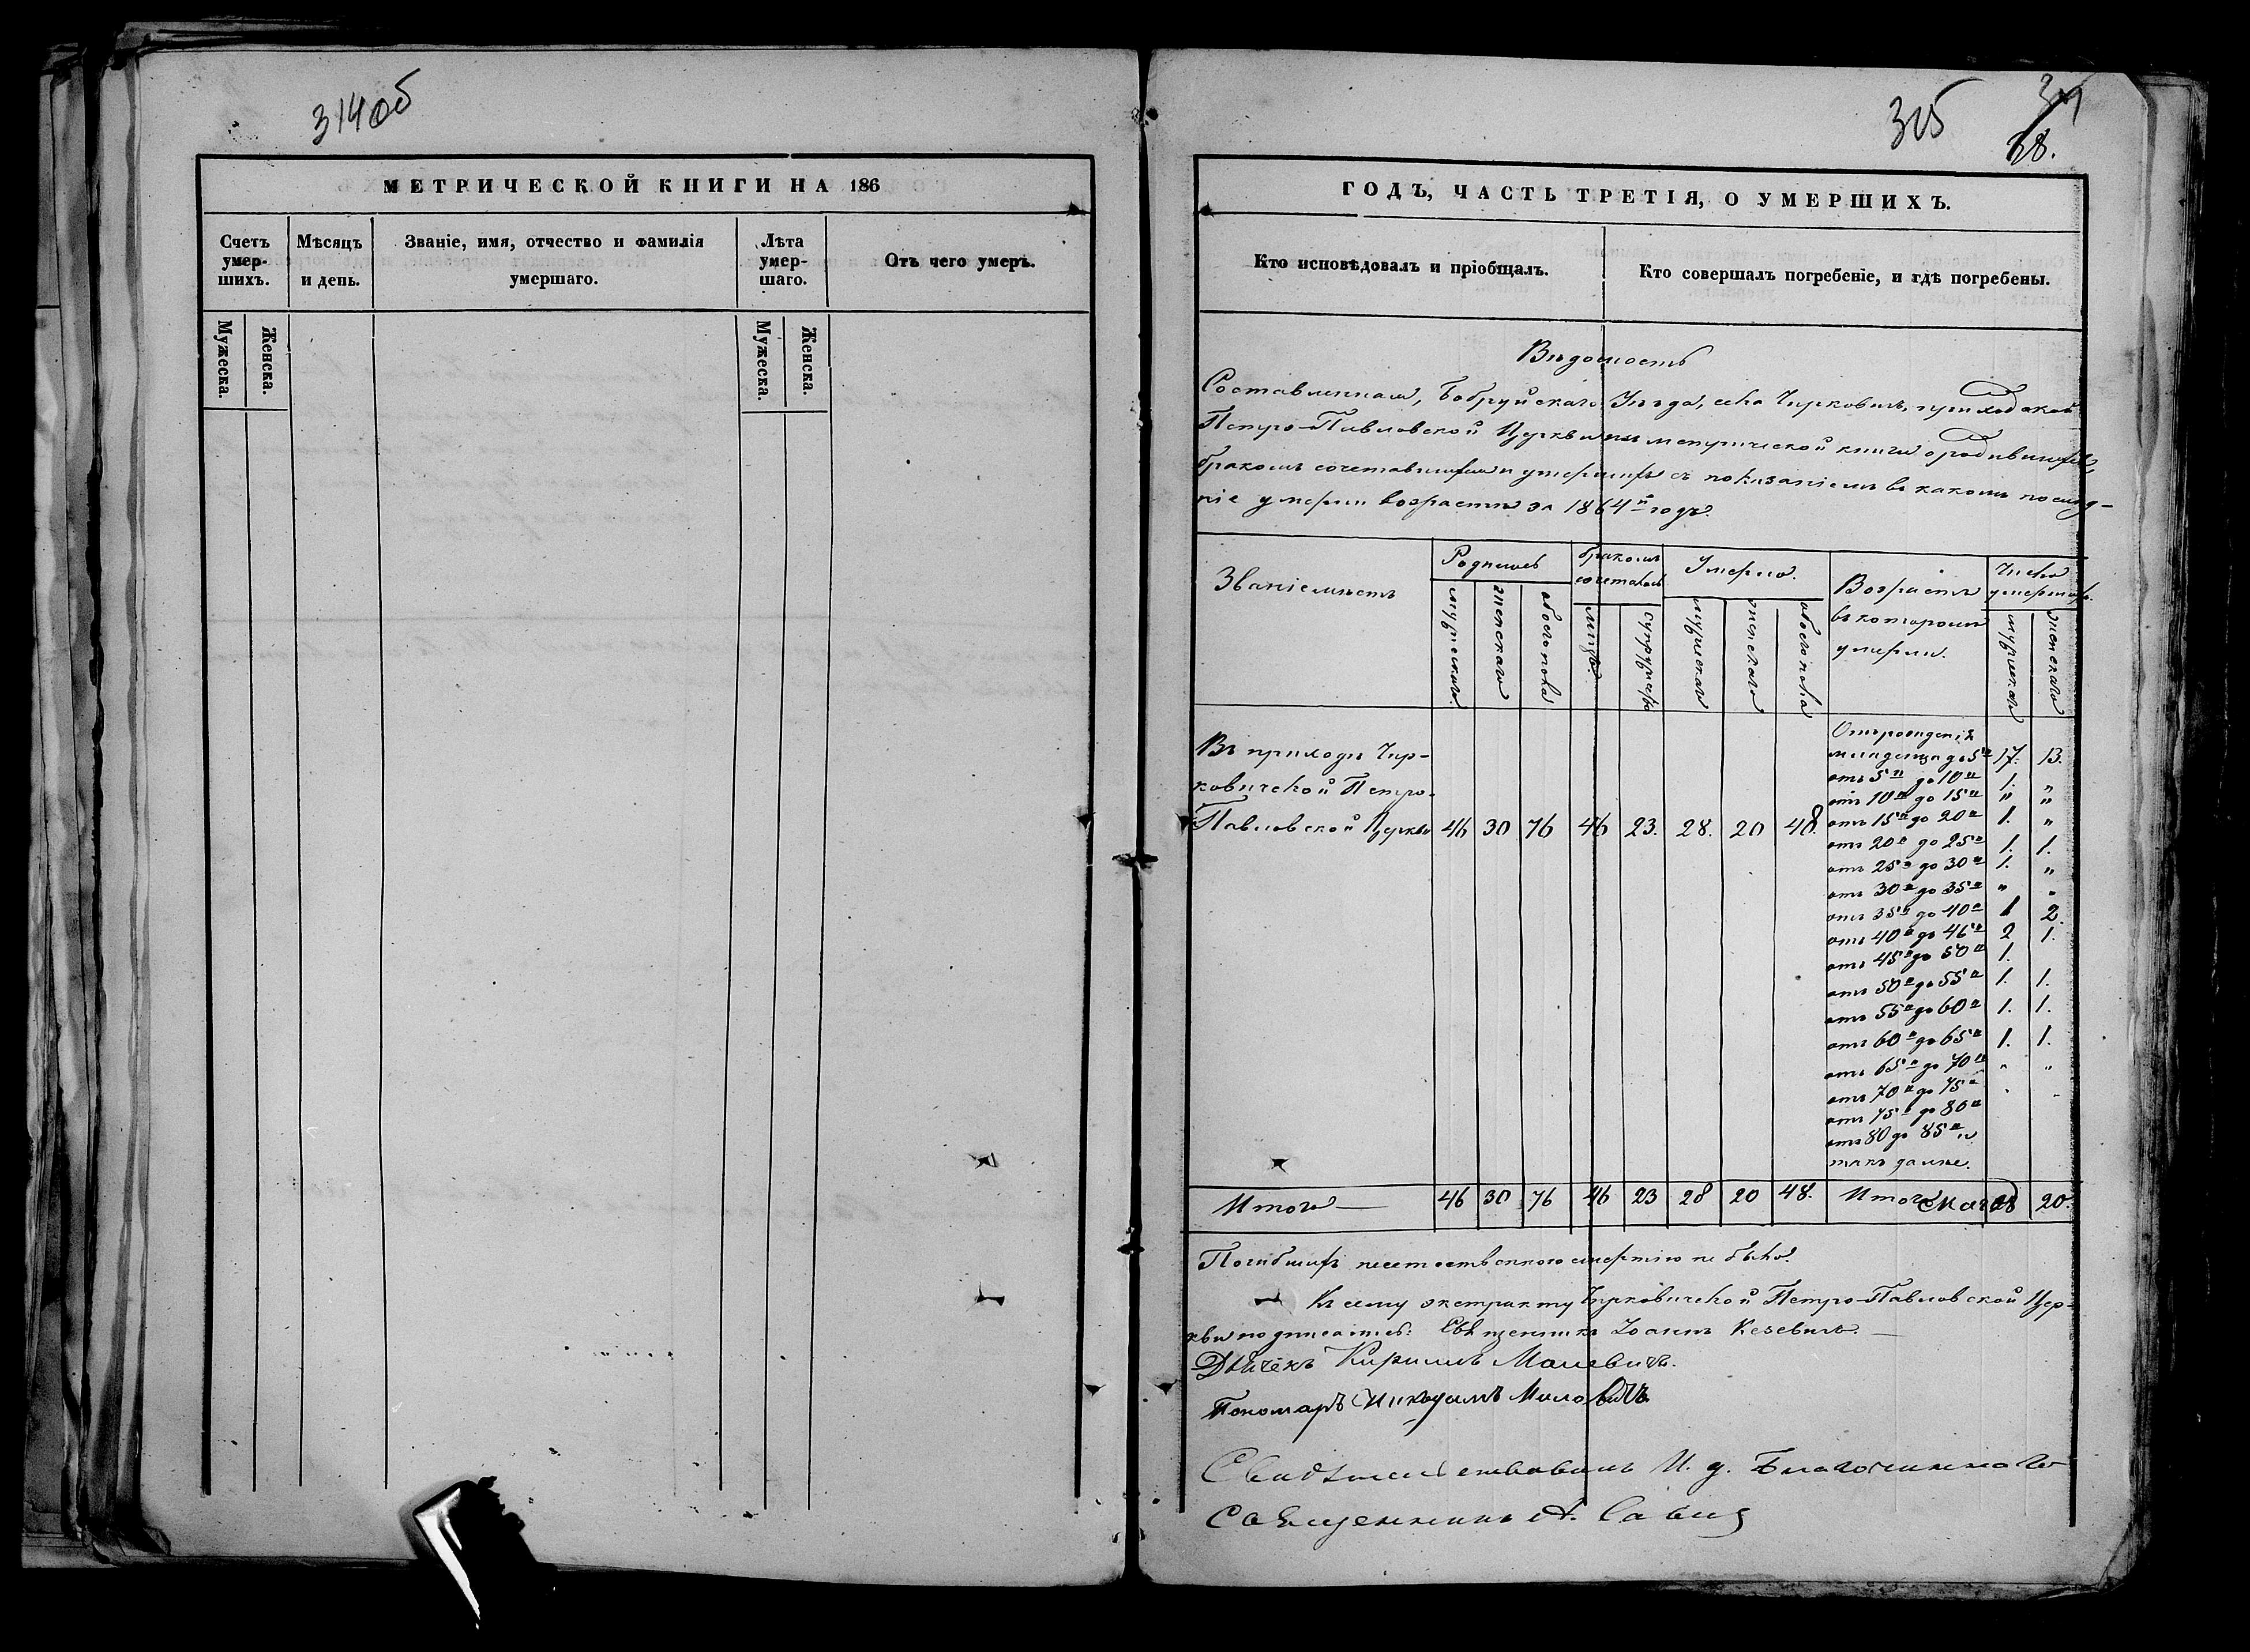 314об
МЕТРИЧЕСКОЙ КНИГИ НА 186
Счетъ умер-шихъ.
Мѣсяцъ и день.
Званіе, имя, отчество и фамилія умершаго.
Лѣта умер-шаго.
Отъ чего умеръ.
Мужеска.
Женска.
Мужеска.
Женска.
315
68.
ГОДЪ, ЧАСТЬ ТРЕТІЯ, О УМЕРШИХЪ.
Кто исповѣдовалъ и пріобщалъ.
Кто совершалъ погребеніе, и гдѣ погребены.
Вѣдомость
Составленная, Бобруйскаго Уѣзда, села Чирковичъ, приходской
Петро-Павловской Церкви изъ метрической книги о родившихся,
бракомъ сочетавшихся и умершихъ съ показаніемъ въ какомъ послѣд-
ніе умерли возрастѣ за 1864й годъ.
Званіе мѣстъ
Родилось
бракомъ сочеталось
Умерло.
Возрастъ въ которомъ умерли.
Число умершихъ.
мужескаго.
женскаго
обоего пола
лицъ.
супружествъ
мужескаго
женскаго
обоего пола
мужескаго
женскаго
Въ приходѣ Чир-
ковичской Петро-
Павловской Церкви 46 30 76 46 23. 28. 20 48.
Отъ рожденія
младенца до 5и 17. 13.
отъ 5и до 10и 1. "
отъ 10и до 15и " "
отъ 15и до 20и 1. "
отъ 20и до 25и 1. 1.
отъ 25и до 30и 1. "
отъ 30и до 35и " "
отъ 35и до 40и 1 2.
отъ 40и до 46и 2 1.
отъ 45и до 50и 1.
отъ 50и до 55и 1. 1.
отъ 55и до 60и 1. 1.
отъ 60и до 65и 1. 1.
отъ 65и до 70и " "
отъ 70и до 75и " "
отъ 75и до 80и
отъ 80 до 85и и
такъ далѣе.
Итого — 46 30 76 46 23 28 20 48. Итого 28 20.
Погибшихъ неестественною смертію не было.
Къ сему экстракту Чирковичской Петро-Павловской Цер-
кви подписались: Священникъ Іоаннъ Кезевичъ. —
Дьячекъ Кириллъ Малевичъ.
Пономарь Никодимъ Миловичъ
Свидѣтельствовалъ И. д. Благочиннаго
Священникъ А. Савич